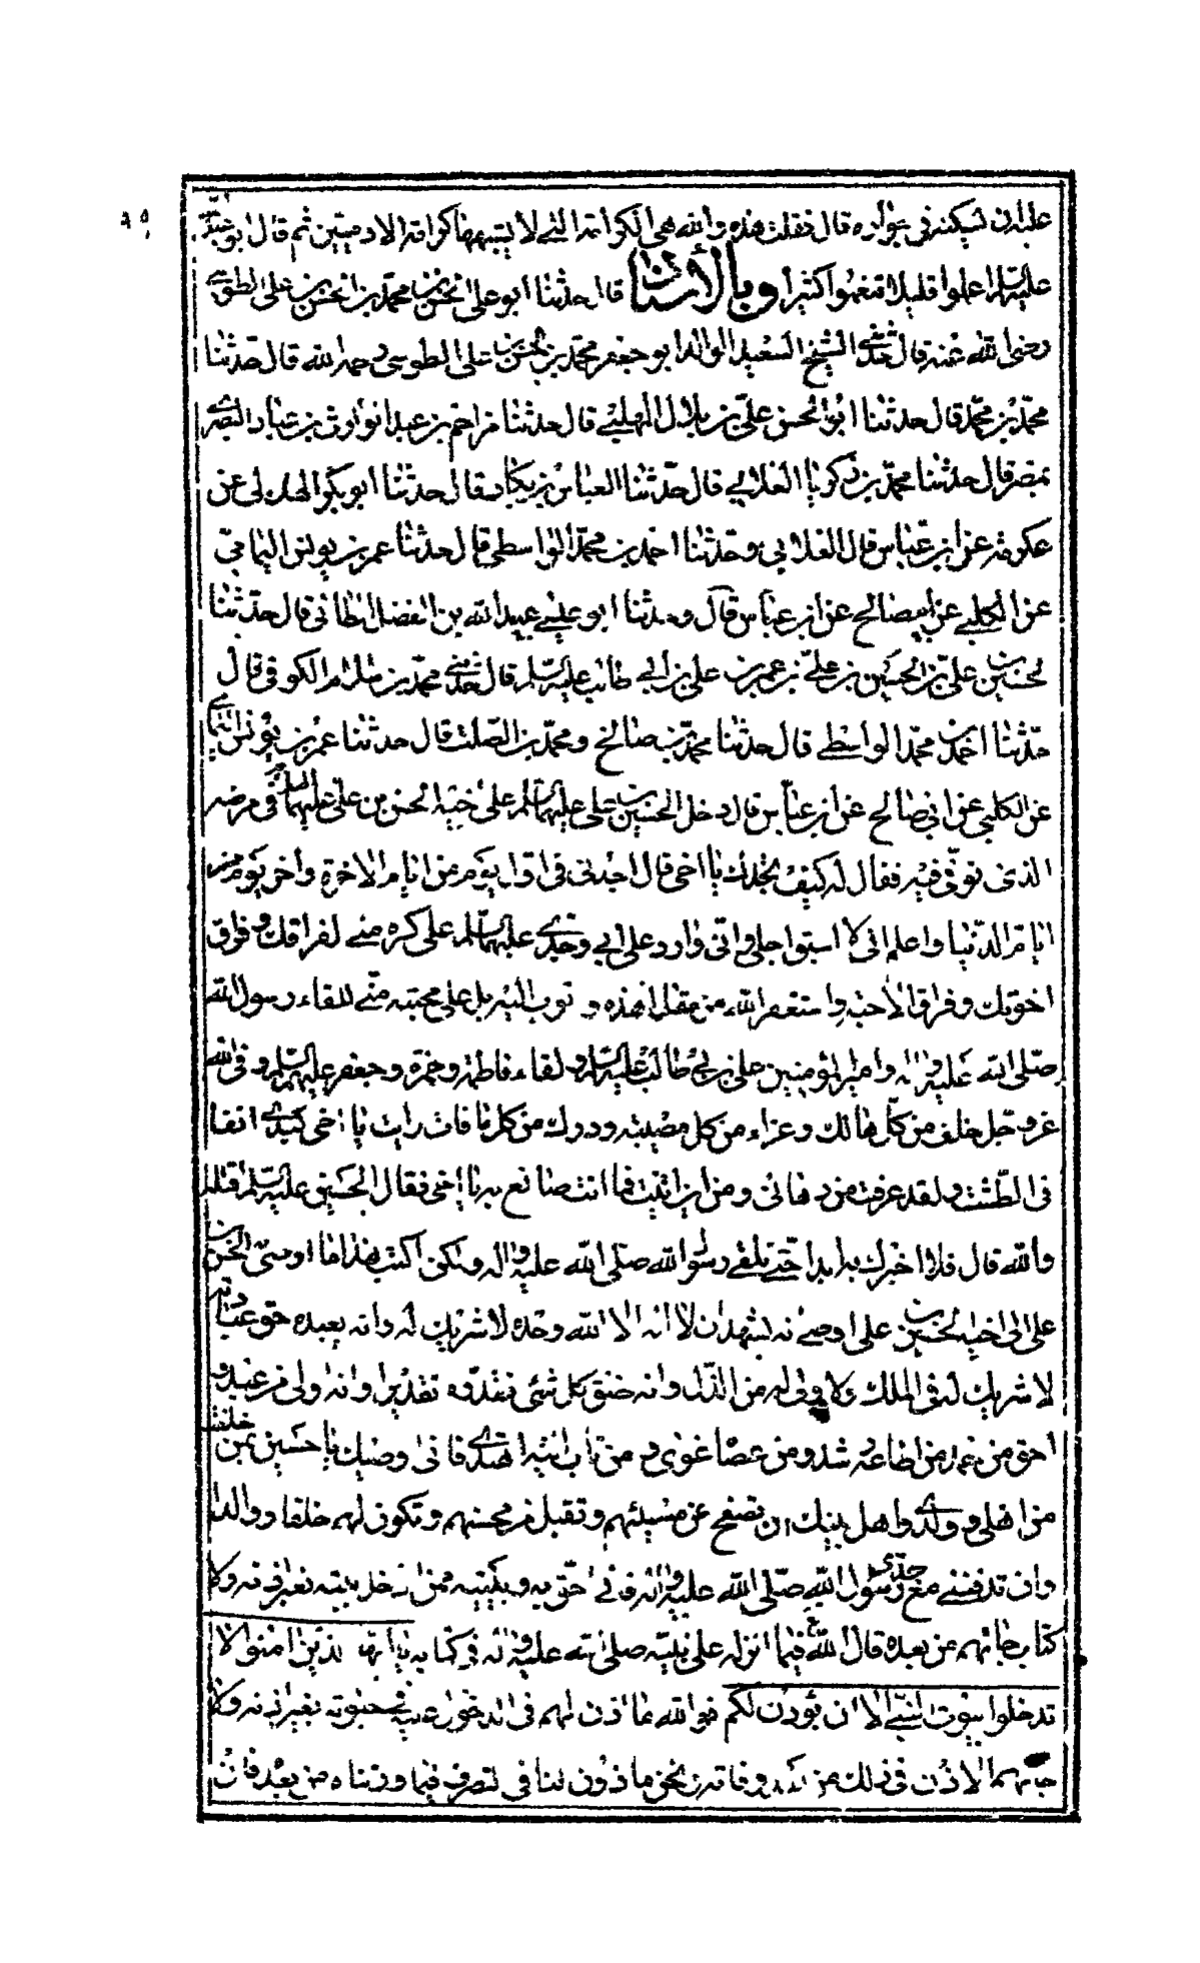 على ان نسكنه في جواره قال فقلت هذه والله هي الكرامة التي لا يشبهها كرامة الادميين ثم قال ابو عبد الله
عليه السلم اعملوا قليلا تنعموا كثيرا وبالأسناد قال حدثنا ابو على الحسن بن محمد بن الحسن بن على الطوسي
رضى الله عنه قال حدثني الشيخ السعيد الوالد ابو جعفر محمد بن الحسن بن على الطوسى رحمه الله قال حدثنا
محمد بن محمد قال حدثنا ابو الحسن على بن بلال المهلبي قال حدثنا مزاحم بن عبد الوارث بن عباد البصري
بمصر قال حدثنا محمد بن زكريا الغلابي قال حدثنا العباس بن بكار قال حدثنا ابو بكر الهذلى عن
عكرمة عن ابن عباس قال الغلابي وحدثنا احمد بن محمد الواسطى قال حدثنا عمر بن يونس اليمامى
عن الكلبي عن ابي صالح عن ابن عباس قال وحدثنا ابو عيسى عبيد الله بن الفضل الطائى قال حدثنا
الحسين بن على بن الحسين بن على بن عمر بن على بن ابي طالب عليه السلم قال حدثني محمد بن سلام الكوفى قال
حدثنا احمد بن محمد الواسطي قال حدثنا محمد بن صالح ومحمد بن الصلت قال حدثنا عمر بن يونس اليمامي
عن الكلبي عن ابى صالح عن ابن عباس قال دخل الحسين بن على عليهما السلم على اخيه الحسن بن على عليهما السلم فى مرضه
الذى توفى فيه فقال له كيف نجدك يا اخى قال اجدنى فى اول يوم من ايام الاخرة واخر يوم من
ايام الدنيا واعلم انى لا اسبق اجلى وانى وارد على ابي وجدي عليهما السلم على كره مني لفراقك وفراق
اخوتك وفراق الاحبة واستغفر الله من مقالى هذه واتوب اليه بل على محبة مني للقاء رسول الله
صلى الله عليه واله وامير المؤمنين على بن ابي طالب عليه السلم ولقاء فاطمة وحمزة وجعفر عليهم السلم وفى الله
عز وجل خلف من كل هالك وعزاء من كل مصيبة ودرك من كل ما فات رايت يا اخى كبدي انفا
فى الطشت ولقد عرفت من دهانى ومن اين اتيت فما انت صانع به يا اخى فقال الحسين عليه السلم اقتله
والله قال فلا اخبرك به ابدا حتى نلقى رسول الله صلى الله عليه واله ولكن اكتب هذا ما اوصى به الحسن بن
على الى اخيه الحسين بن على اوصى انه يشهد ان لا اله الا الله وحده لا شريك له وانه يعبده حق عبادته
لا شريك له فى الملك ولا ولى له من الذل وانه خلق كل شئ فقدره تقديرا وانه اولى من عبد و
احق من حمد من اطاعه رشد ومن عصاه غوى ومن تاب اليه اهتدي فانى اوصيك يا حسين بمن خلفت
من اهلى وولدي واهل بيتك ان تصفح عن مسيئهم وتقبل من محسنهم وتكون لهم خلفا ووالدا
وان تدفنني مع جدى رسول الله صلى الله عليه واله فانى احق به وببيته ممن ادخل بيته بغير اذنه ولا
كتاب جائهم من بعده قال الله فيما انزله على نبيه صلى الله عليه واله فى كتابه يا ايها الذين امنوا لا
تدخلوا بيوت النبي الا ان يؤذن لكم فوالله ما اذن لهم فى الدخول عليه في حيوته بغير اذنه ولا
جائهم الاذن فى ذلك من بعد وفاته ونحن ماذون لنا فى التصرف فيما ورثناه من بعده فان